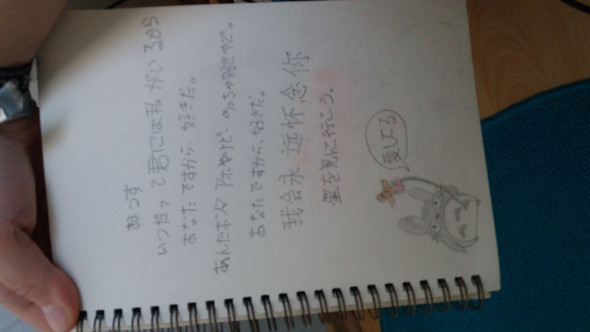 おっす
いつだって君には私がいるから
あなたですから、好きだ。
あんたボケアホやけど、めっちゃ好きやど。
あなたですから、好きだ。
我会永远怀念你
星を見に行こう。
愛してる